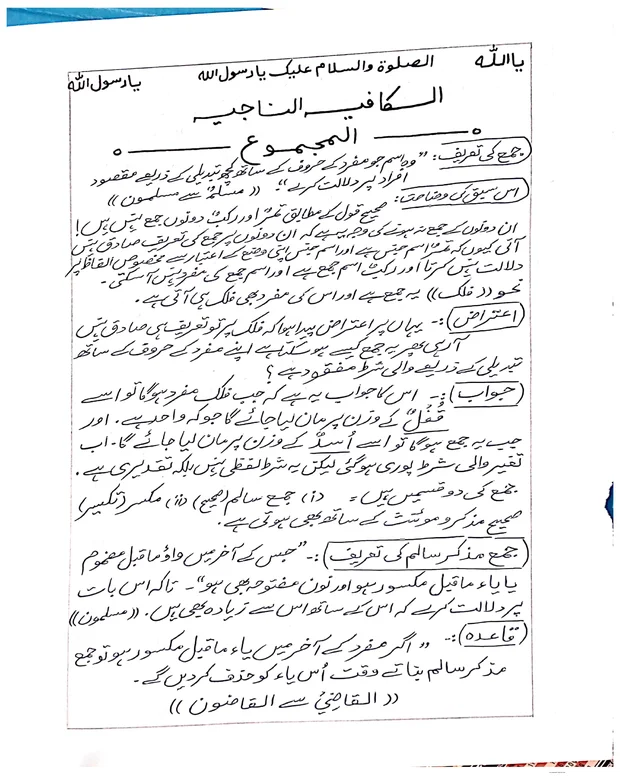 یااللہ الصلوۃ والسلام علیک یارسول اللہ یارسول اللہ
الکافیہ الناجیہ
المجموع
جمع کی تعریف: "وہ اسم جو مفرد کے حروف کے ساتھ کچھ تبدیلی کے ذریعے مقصود
افراد پر دلالت کرے": ((مسلمٌ سے مسلمون))
اس سبق کی وضاحت: صحیح قول کے مطابق تمرٌ اور رکبٌ دونوں جمع نہیں ہیں!
ان دونوں کے جمع نہ ہونے کی وجہ یہ ہے کہ ان دونوں پر جمع کی تعریف صادق نہیں
آتی کیوں کہ تمرٌ اسم جنس ہے اور اسم جنس اپنی وضع کے اعتبار سے مخصوص الفاظ پر
دلالت نہیں کرتا اور رکبٌ اسم جمع ہے اور اسم جمع کی مفرد نہیں آسکتی۔
نحو ((فلک)) یہ جمع ہے اور اس کی مفرد بھی فلک ہی آتی ہے۔
اعتراض:- یہاں پر اعتراض پیدا ہوا کہ فلک پر تو تعریف ہی صادق نہیں
آرہی پھر یہ جمع کیسے ہو سکتا ہے اپنے مفرد کے حروف کے ساتھ
تبدیلی کے ذریعے والی شرط مفقود ہے؟
جواب:- اس کا جواب یہ ہے کہ جب فلک مفرد ہوگا تو اسے
قُفْلٌ کے وزن پر مان لیا جائے گا جو کہ واحد ہے۔ اور
جب یہ جمع ہوگا تو اسے اُسدٌ کے وزن پر مان لیا جائے گا۔ اب
تغیر والی شرط پوری ہوگئی لیکن یہ شرط لفظی نہیں بلکہ تقدیری ہے۔
جمع کی دو قسمیں ہیں = (i) جمع سالم (صحیح) (ii) مکسر (تکسیر)
صحیح مذکر و مونث کے ساتھ بھی ہوتی ہے۔
جمع مذکر سالم کی تعریف:- "جس کے آخر میں واؤ ماقبل مضموم
یا یاء ماقبل مکسور ہو اور نون مفتوحہ بھی ہو"۔ تاکہ اس بات
پر دلالت کرے کہ اس کے ساتھ اس سے زیادہ بھی ہیں۔ ((مسلمون))
قاعدہ:- "اگر مفرد کے آخر میں یاء ماقبل مکسور ہو تو جمع
مذکر سالم بناتے وقت اُس یاء کو حذف کر دیں گے۔
((القاضِیُ سے القاضون))